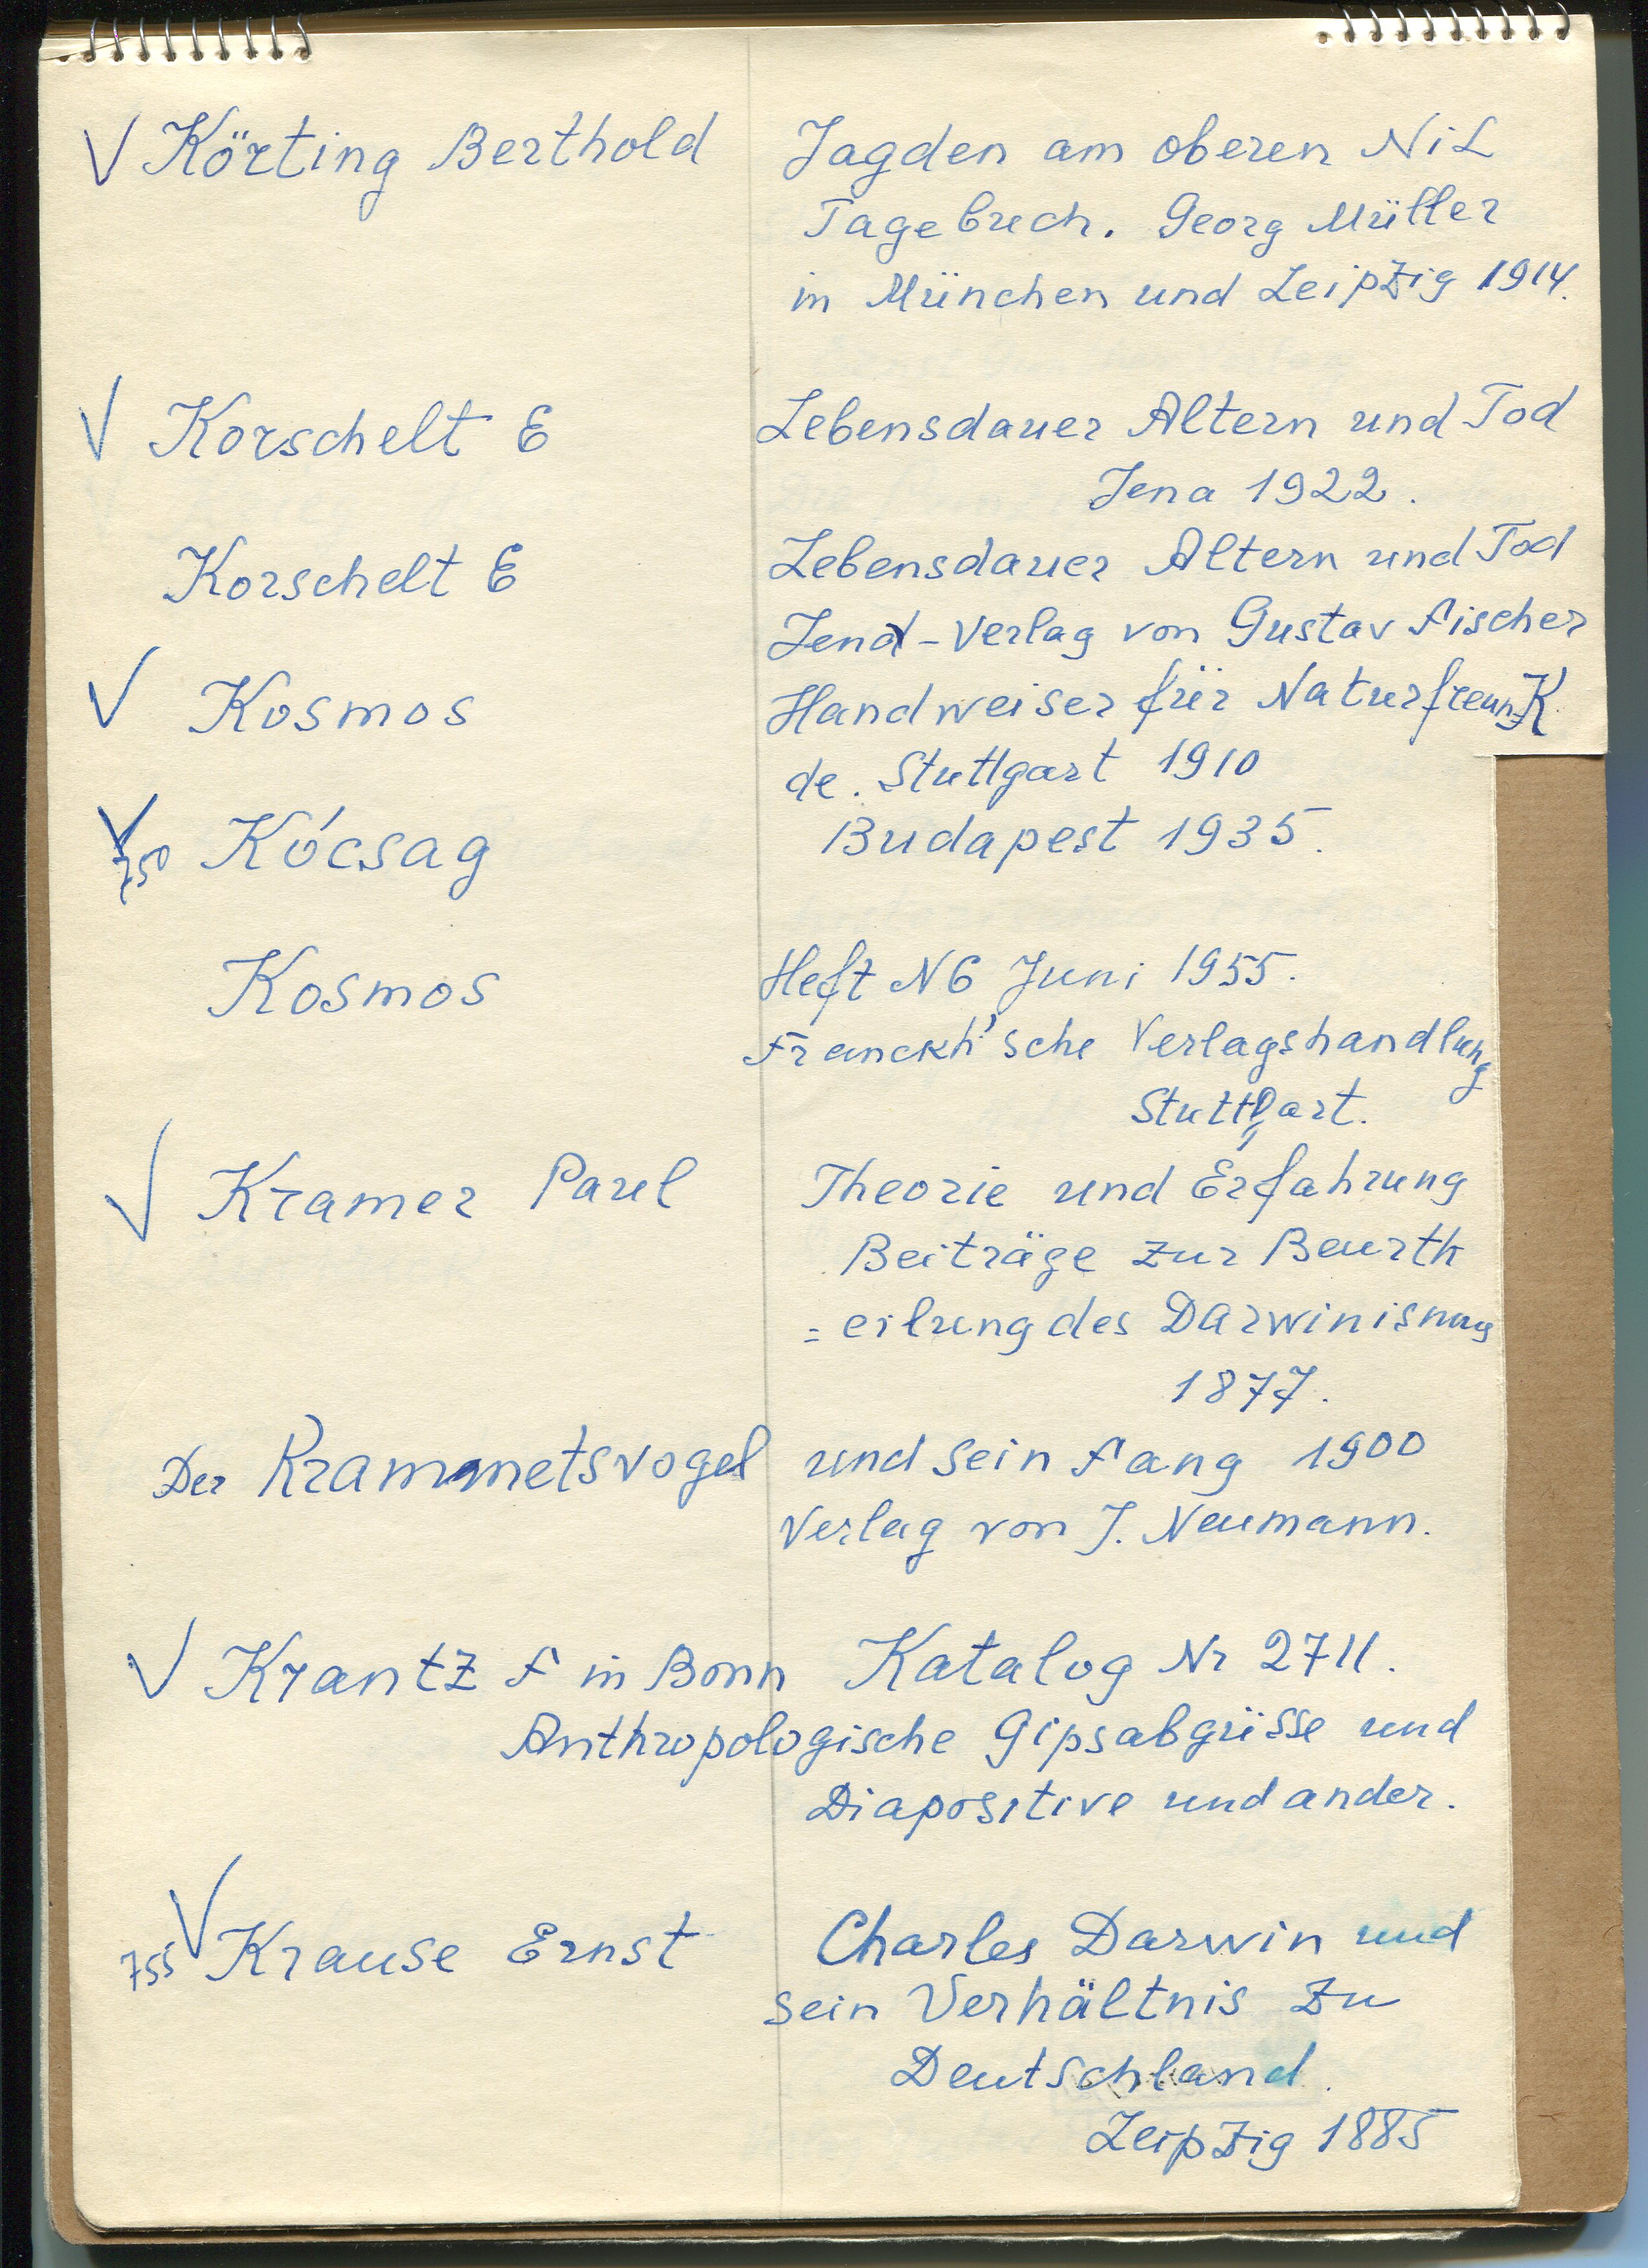 √ Körting Berthold Jagden am oberen Nil
Tagebuch. Georg Müller
in München und Leipzig 1914.
√ Korschelt E Lebensdauer Altern und Tod
Jena 1922.
Korschelt E Lebensdauer Altern und Tod
Jena - Verlag von Gustav Fischer
√ Kosmos Handweiser für Naturfreun=
K
de. Stuttgart 1910
√ 750 Kócsag Budapest 1935.
Kosmos Heft N6 Juni 1955.
Franckh'sche Verlagshandlung
Stuttgart.
√ Kramer Paul Theorie und Erfahrung
Beiträge zur Beurth
= eilung des Darwinismus
1877.
Der Krammetsvogel und sein Fang 1900
Verlag von J. Neumann.
√ Krantz F in Bonn Katalog Nr 2711.
Anthropologische Gipsabgüsse und
Diapositive und ander.
√ 755 Krause Ernst Charles Darwin und
sein Verhältnis zu
Deutschland.
Leipzig 1885